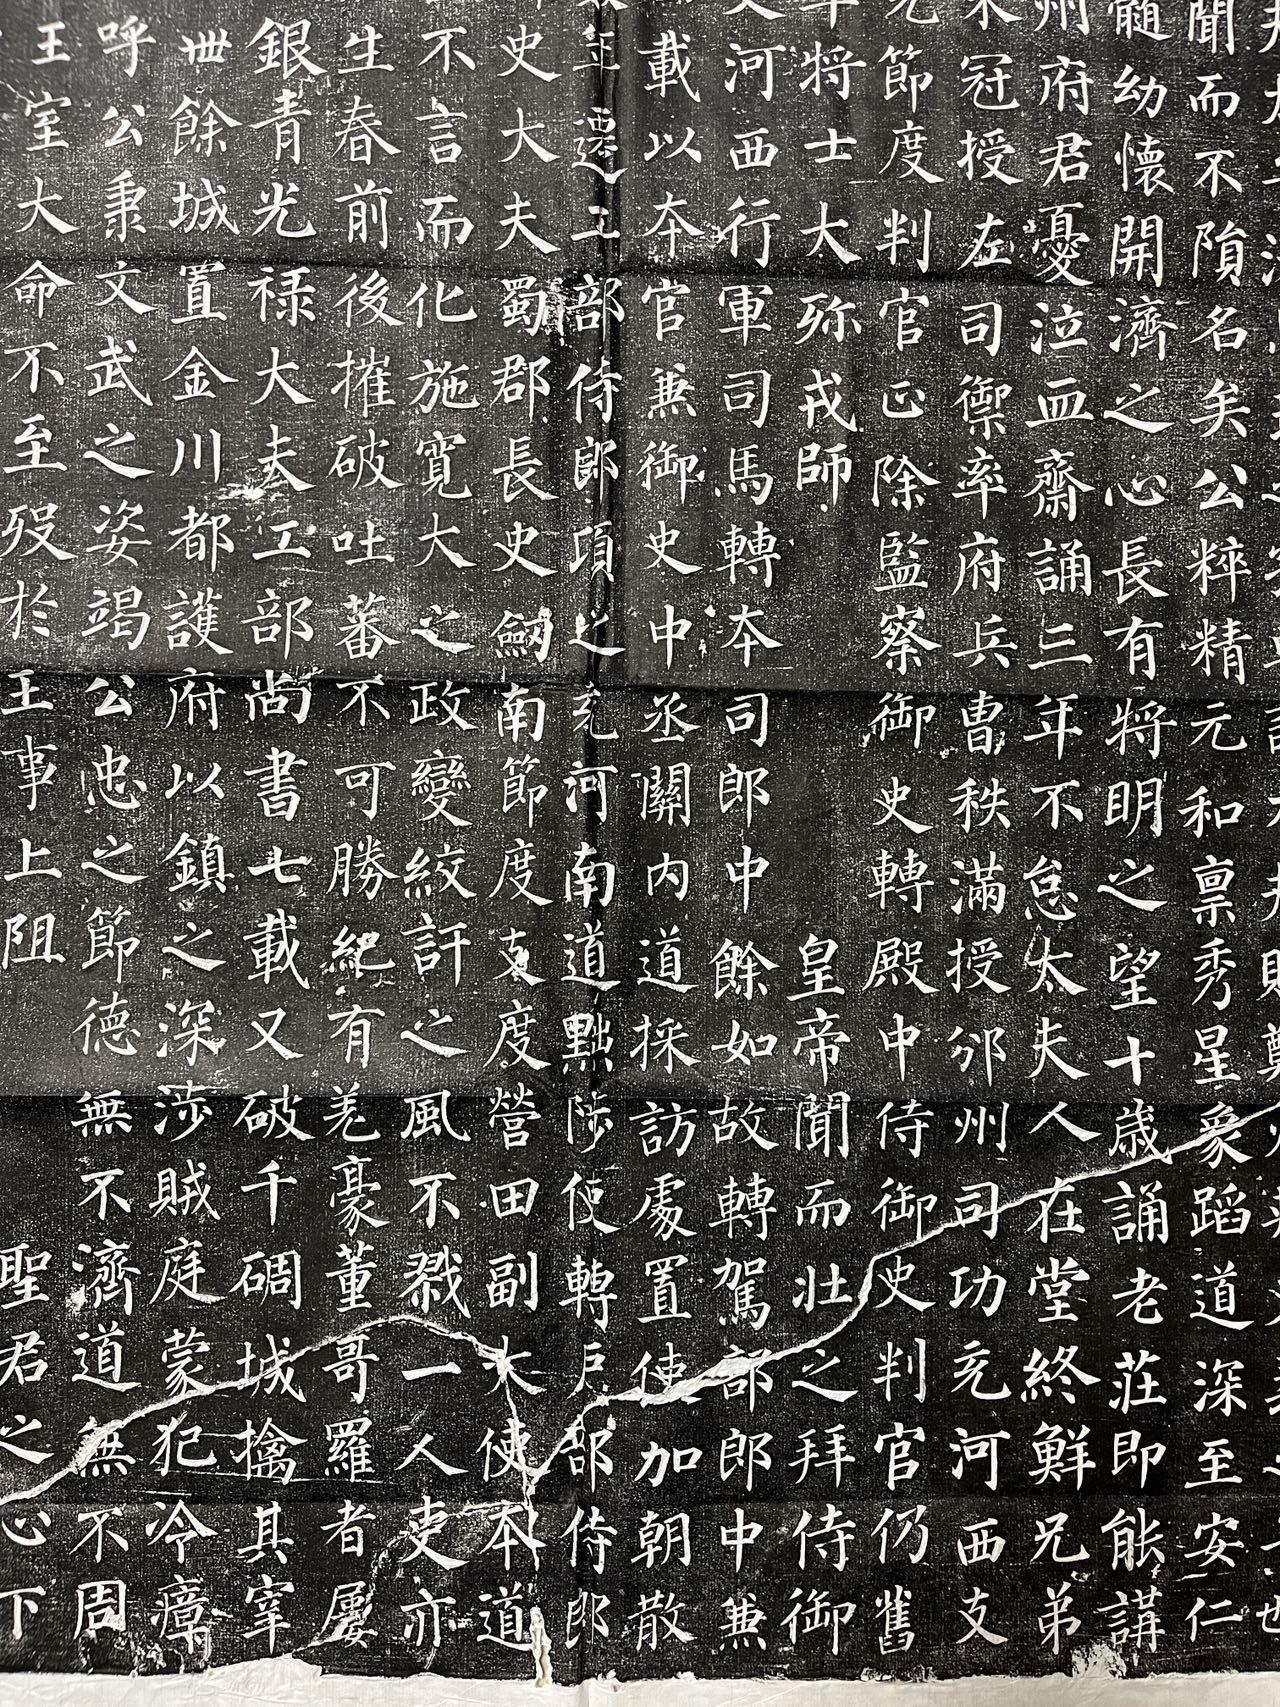 聞而不隕名矣公粹精元和禀秀星象蹈道深至安仁
髓幼懷開濟之心長有将明之望十歲誦老莊即能講
州府君憂泣血齋誦三年不怠太夫人在堂終鮮兄弟
冠授左司禦率府兵曹秩滿授邠州司功充河西支
節度判官正除監察御史轉殿中侍御史判官仍舊
将士大弥戎師皇帝聞而壯之拜侍御
河西行軍司馬轉本司郎中餘如故轉駕部郎中兼
載以本官兼御史中丞關内道採訪處置使加朝散
年遷工部侍郎項之充河南道黜陟使轉戶部侍郎
史大夫蜀郡長史劒南節度支度營田副大使本道
不言而化施寛大之政變絞訐之風不戮一人吏亦
生春前後摧破吐蕃不可勝紀有羌豪董哥羅者屢
銀青光禄大夫工部尚書七載又破千碉城擒其宰
卌餘城置金川都護府以鎮之深涉賊庭蒙犯冷瘴
呼公秉文武之姿竭公忠之節德無不濟道無不周
王室大命不至殁於王事上阻聖君之心下